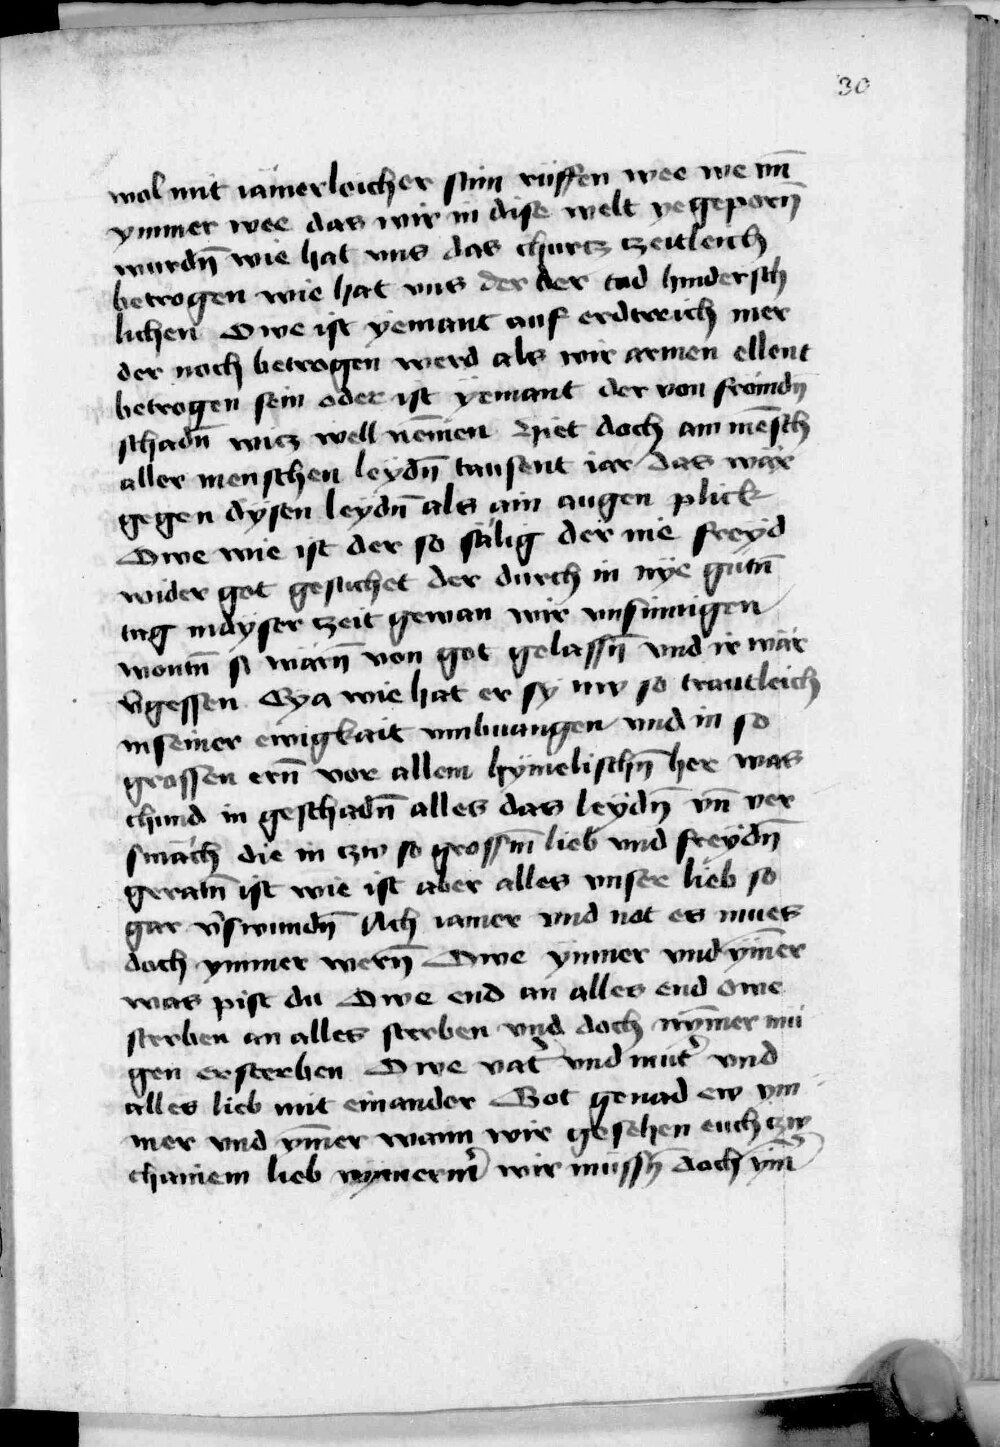 30
wol mit iämerleicher stim rüffen wee we vm̄
ymmer wee das wir in dise welt ye geporn̄
wurdn̄ wie hat vns das churtz tzeitleich
betrogen wie hat vns der der tod hindersch
lichen Owe ist yemant auf erdtrich mer
der noch betrogen werd als wir armen ellent
betrogen sein oder ist yemant der von fromdn̄
schadn̄ witz well nēmen Liet doch am mēsch
aller menschen leydn̄ tausent iar das wär
gegen dysen leydn̄ als ain augen plick
Owe wie ist der so sälig der nie freyd
wider got gesuchet der durch in nye gutn̄
tag in dyser tzeit gewan wir vnsinnigen
wontn̄ si wärn̄ von got gelassn̄ vnd ir wär
v̄gessen Eya wie hat er sy nw so trautleich
in seiner ewigkait vmbuangen vnd in so
grossen ern̄ vor allem hymelischn̄ her was
chund in geschadn̄ alles das leydn̄ vn̄ ver
smäch die in tzw so grossm̄ lieb vnd freydn̄
geratn̄ ist wie ist aber alles vnser lieb so
gar v̄swundn̄ Ach iamer vnd not es mues
doch ymmer wern̄ Owe ymmer vnd ym̄er
was pist du Owe end an alles end owe
sterben an alles sterben vnd doch nym̄er mü
gen ersterben Owe vat̄ vnd mut̄ vnd
alles lieb mit einander Got genad ew ym
mer vnd ym̄er wann wir gesehen euch tzw
chainem lieb nymmerm̄ wir müssn̄ doch ym̄